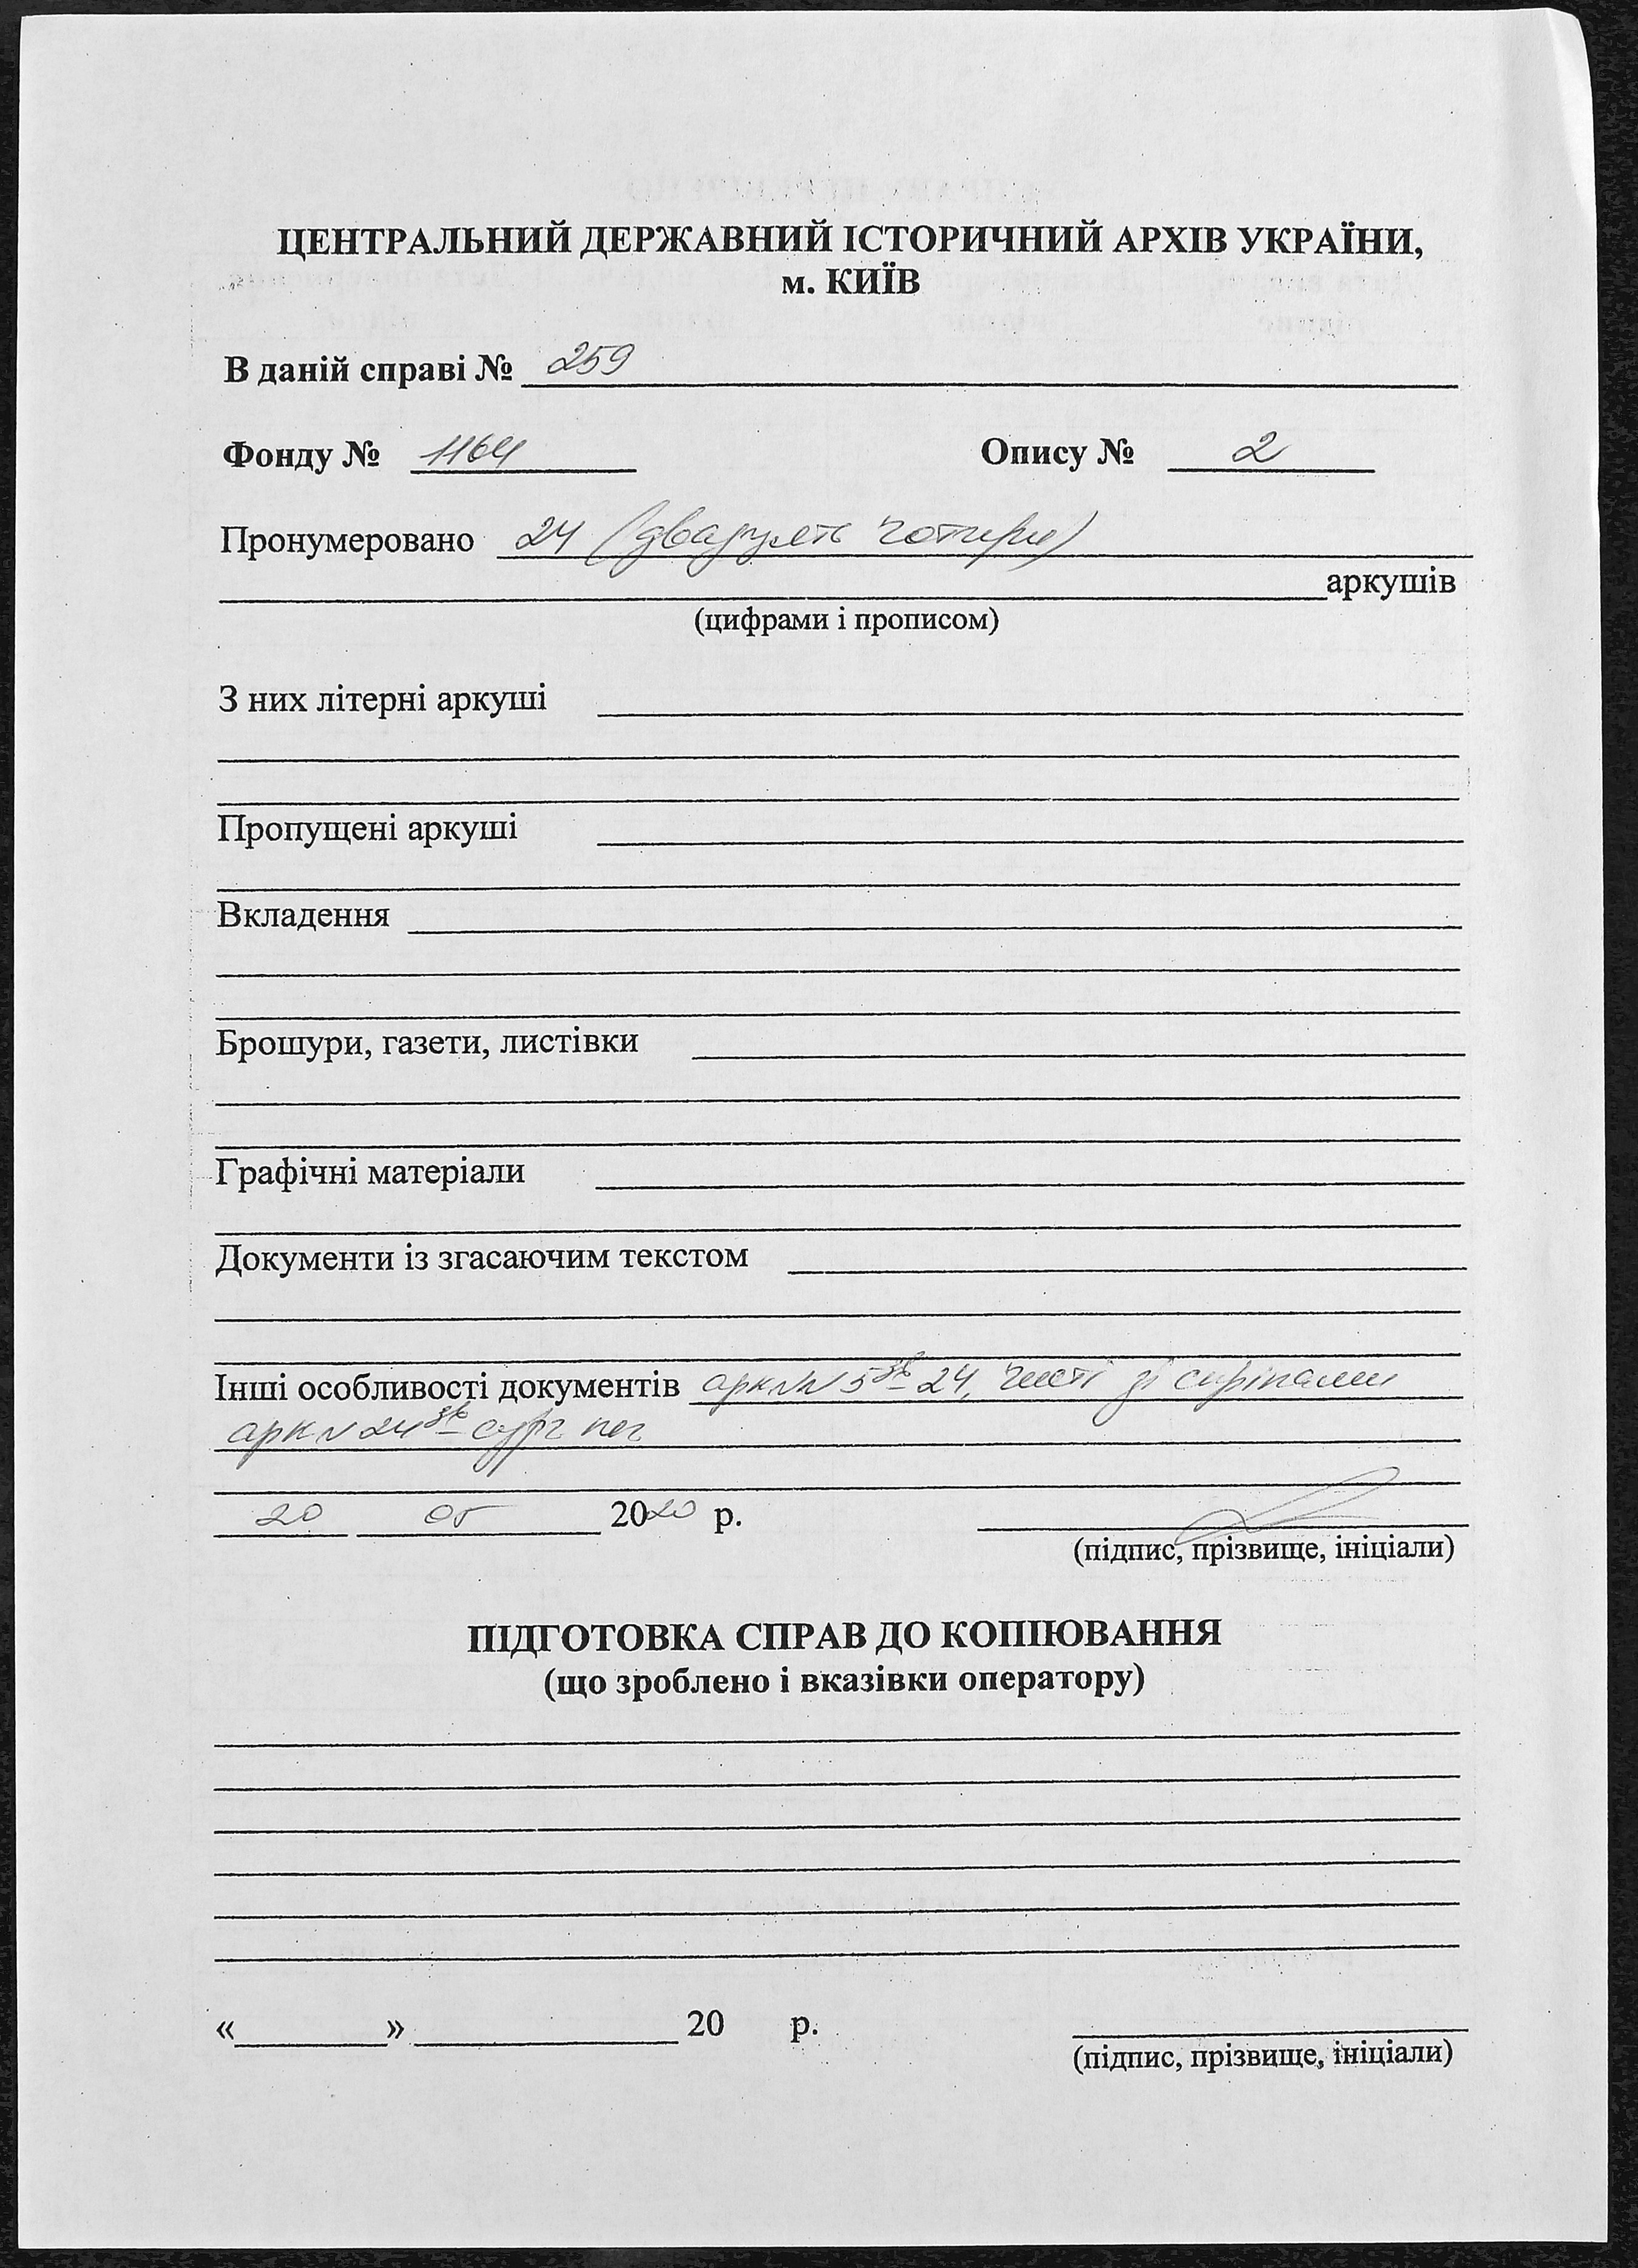 ЦЕНТРАЛЬНИЙ ДЕРЖАВНИЙ ІСТОРИЧНИЙ АРХІВ УКРАЇНИ,
м. КИЇВ
В даній справі № 259
Фонду № 1164 Опису № 2
Пронумеровано 24 (двадцять чотири)
аркушів
(цифрами і прописом)
З них літерні аркуші
Пропущені аркуші
Вкладення
Брошури, газети, листівки
Графічні матеріали
Документи із згасаючим текстом
Інші особливості документів арк №№ 5зв – 24, чисті зі скріпами
арк № 24зв – сург печ
20 05 2020 р.
(підпис, прізвище, ініціали)
ПІДГОТОВКА СПРАВ ДО КОПІЮВАННЯ
(що зроблено і вказівки оператору)
«   »   20   р.
(підпис, прізвище, ініціали)